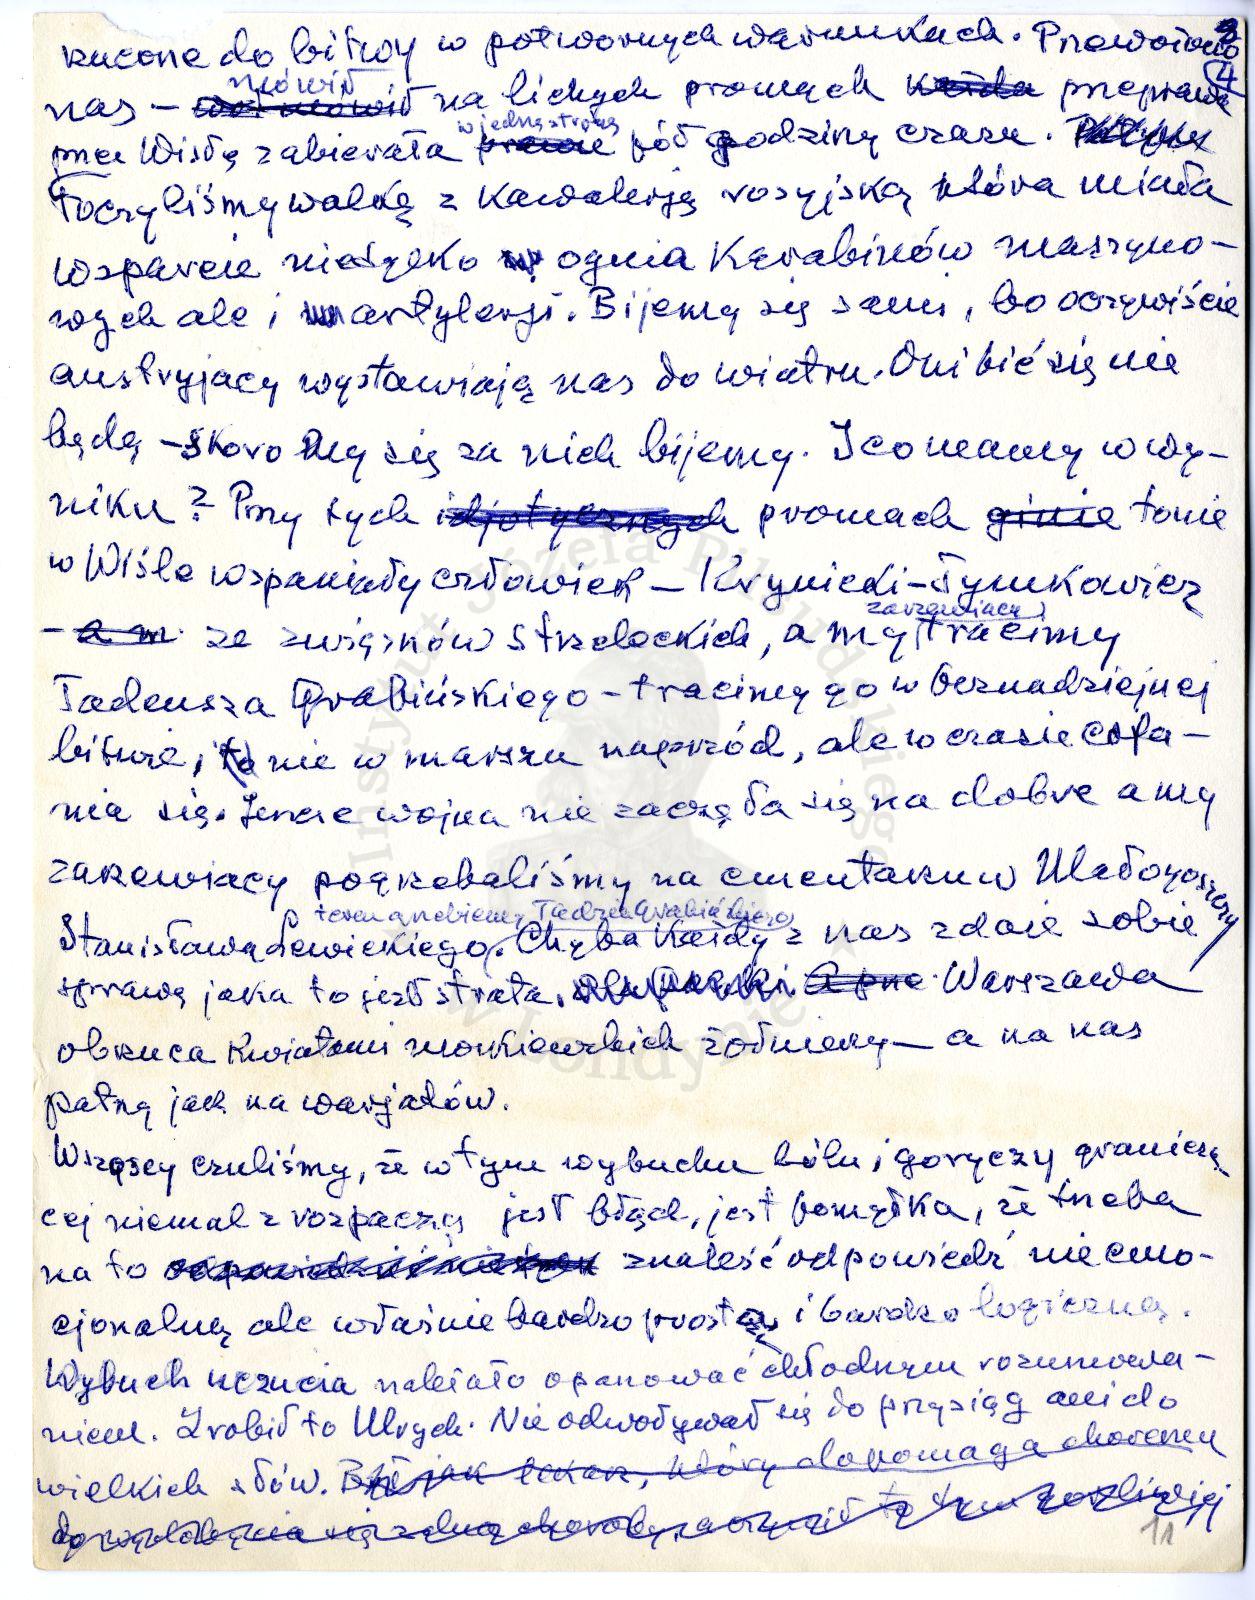 4
rzucone do bitwy w potwornych warunkach. Przewożono
nas – mówił na lichych promach każda przeprawa
przez Wisłę zabierała w jedną stronę pół godziny czasu.
Toczyliśmy walkę z kawalerją rosyjską która miała
wsparcie nietylko ognia karabinów maszyno-
wych ale i artylerji. Bijemy się sami, bo oczywiście
austryjacy wystawiają nas do wiatru. Oni bić się nie
będą – skoro my się za nich bijemy. I co mamy w wy-
niku? Przy tych idjotycznych promach ginie tonie
w Wiśle wspaniały człowiek – Krynicki-Tymkowicz
– a m ze związków strzeleckich, a my zarzewiacy tracimy
Tadeusza Grabińskiego – tracimy go w beznadziejnej
bitwie, i to nie w marszu naprzód, ale w czasie cofa-
nia się. Jeszcze wojna nie zaczęła się na dobre a my
zarzewiacy pogrzebaliśmy na cmentarzu w Małogoszczy
Stanisława Lewickiego, teraz grzebiemy Tadzia Grabińskiego. Chyba każdy z nas zdaje sobie
sprawę jaka to jest strata. A prze Warszawa
obrzuca kwiatami moskiewskich żołnierzy – a na nas
patrzą jak na warjatów.
Wszyscy czuliśmy, że w tym wybuchu bólu i goryczy graniczą-
cej niemal z rozpaczą jest błąd, jest pomyłka, że trzeba
na to znaleść odpowiedź nie emo-
cjonalną ale właśnie bardzo prostą i bardzo logiczną.
Wybuch uczucia należało opanować chłodnym rozumowa-
niem. Zrobił to Ulrych. Nie odwoływał się do przysiąg ani do
wielkich słów. Był jak lekarz, który dopomaga choremu
11